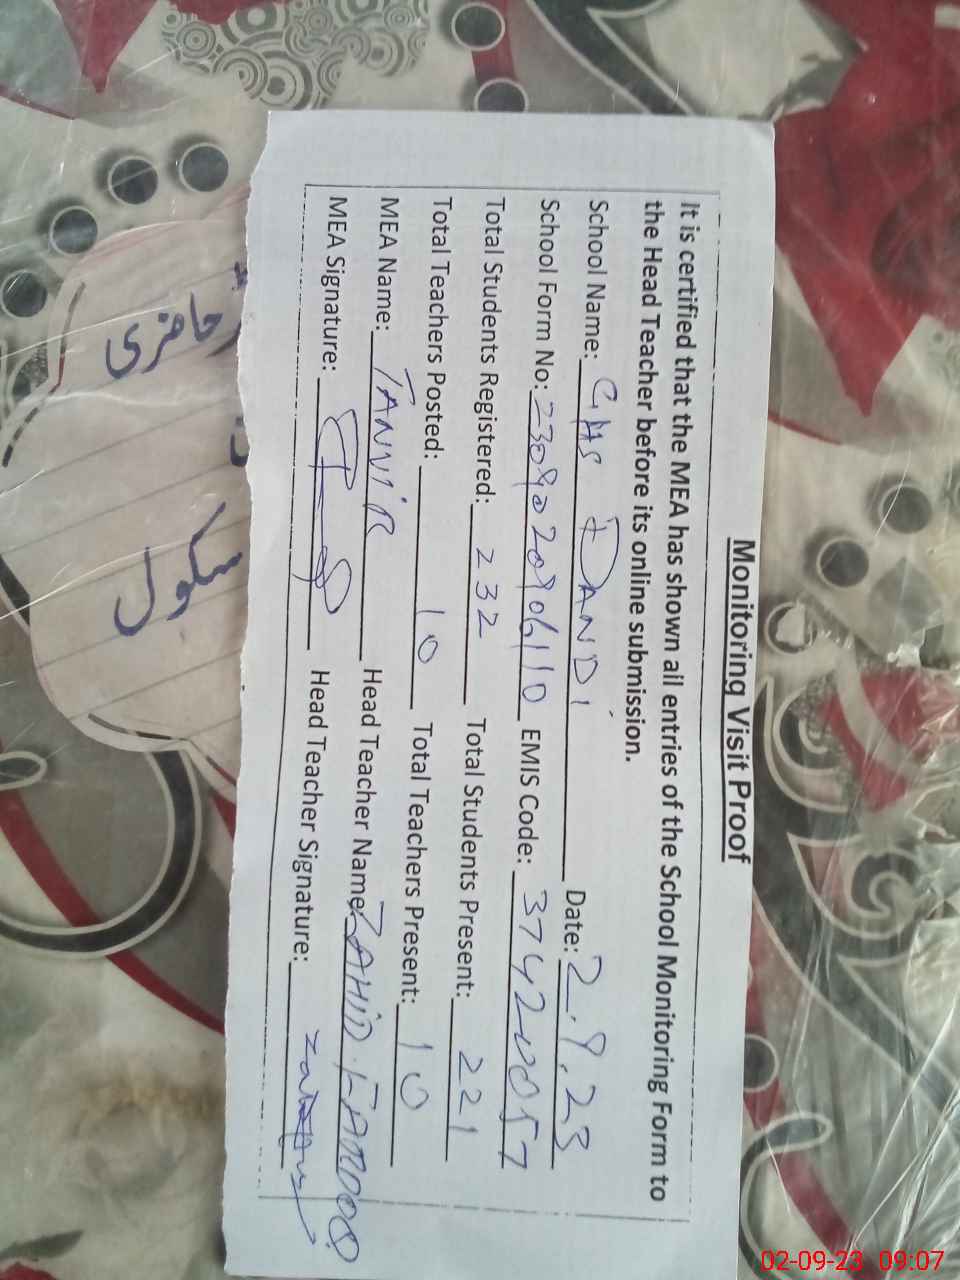 Monitoring Visit Proof
It is certified that the MEA has shown all entries of the School Monitoring Form to
the Head Teacher before its online submission.
School Name: GHS DANDI Date: 2.9.23
School Form No: 2309020906110 EMIS Code: 37420057
Total Students Registered: 232 Total Students Present: 221
Total Teachers Posted: 10 Total Teachers Present: 10
MEA Name: TANVIR Head Teacher Name: ZAHID FAROOQ
MEA Signature: Head Teacher Signature:
حاضری
سکول
02-09-23 09:07